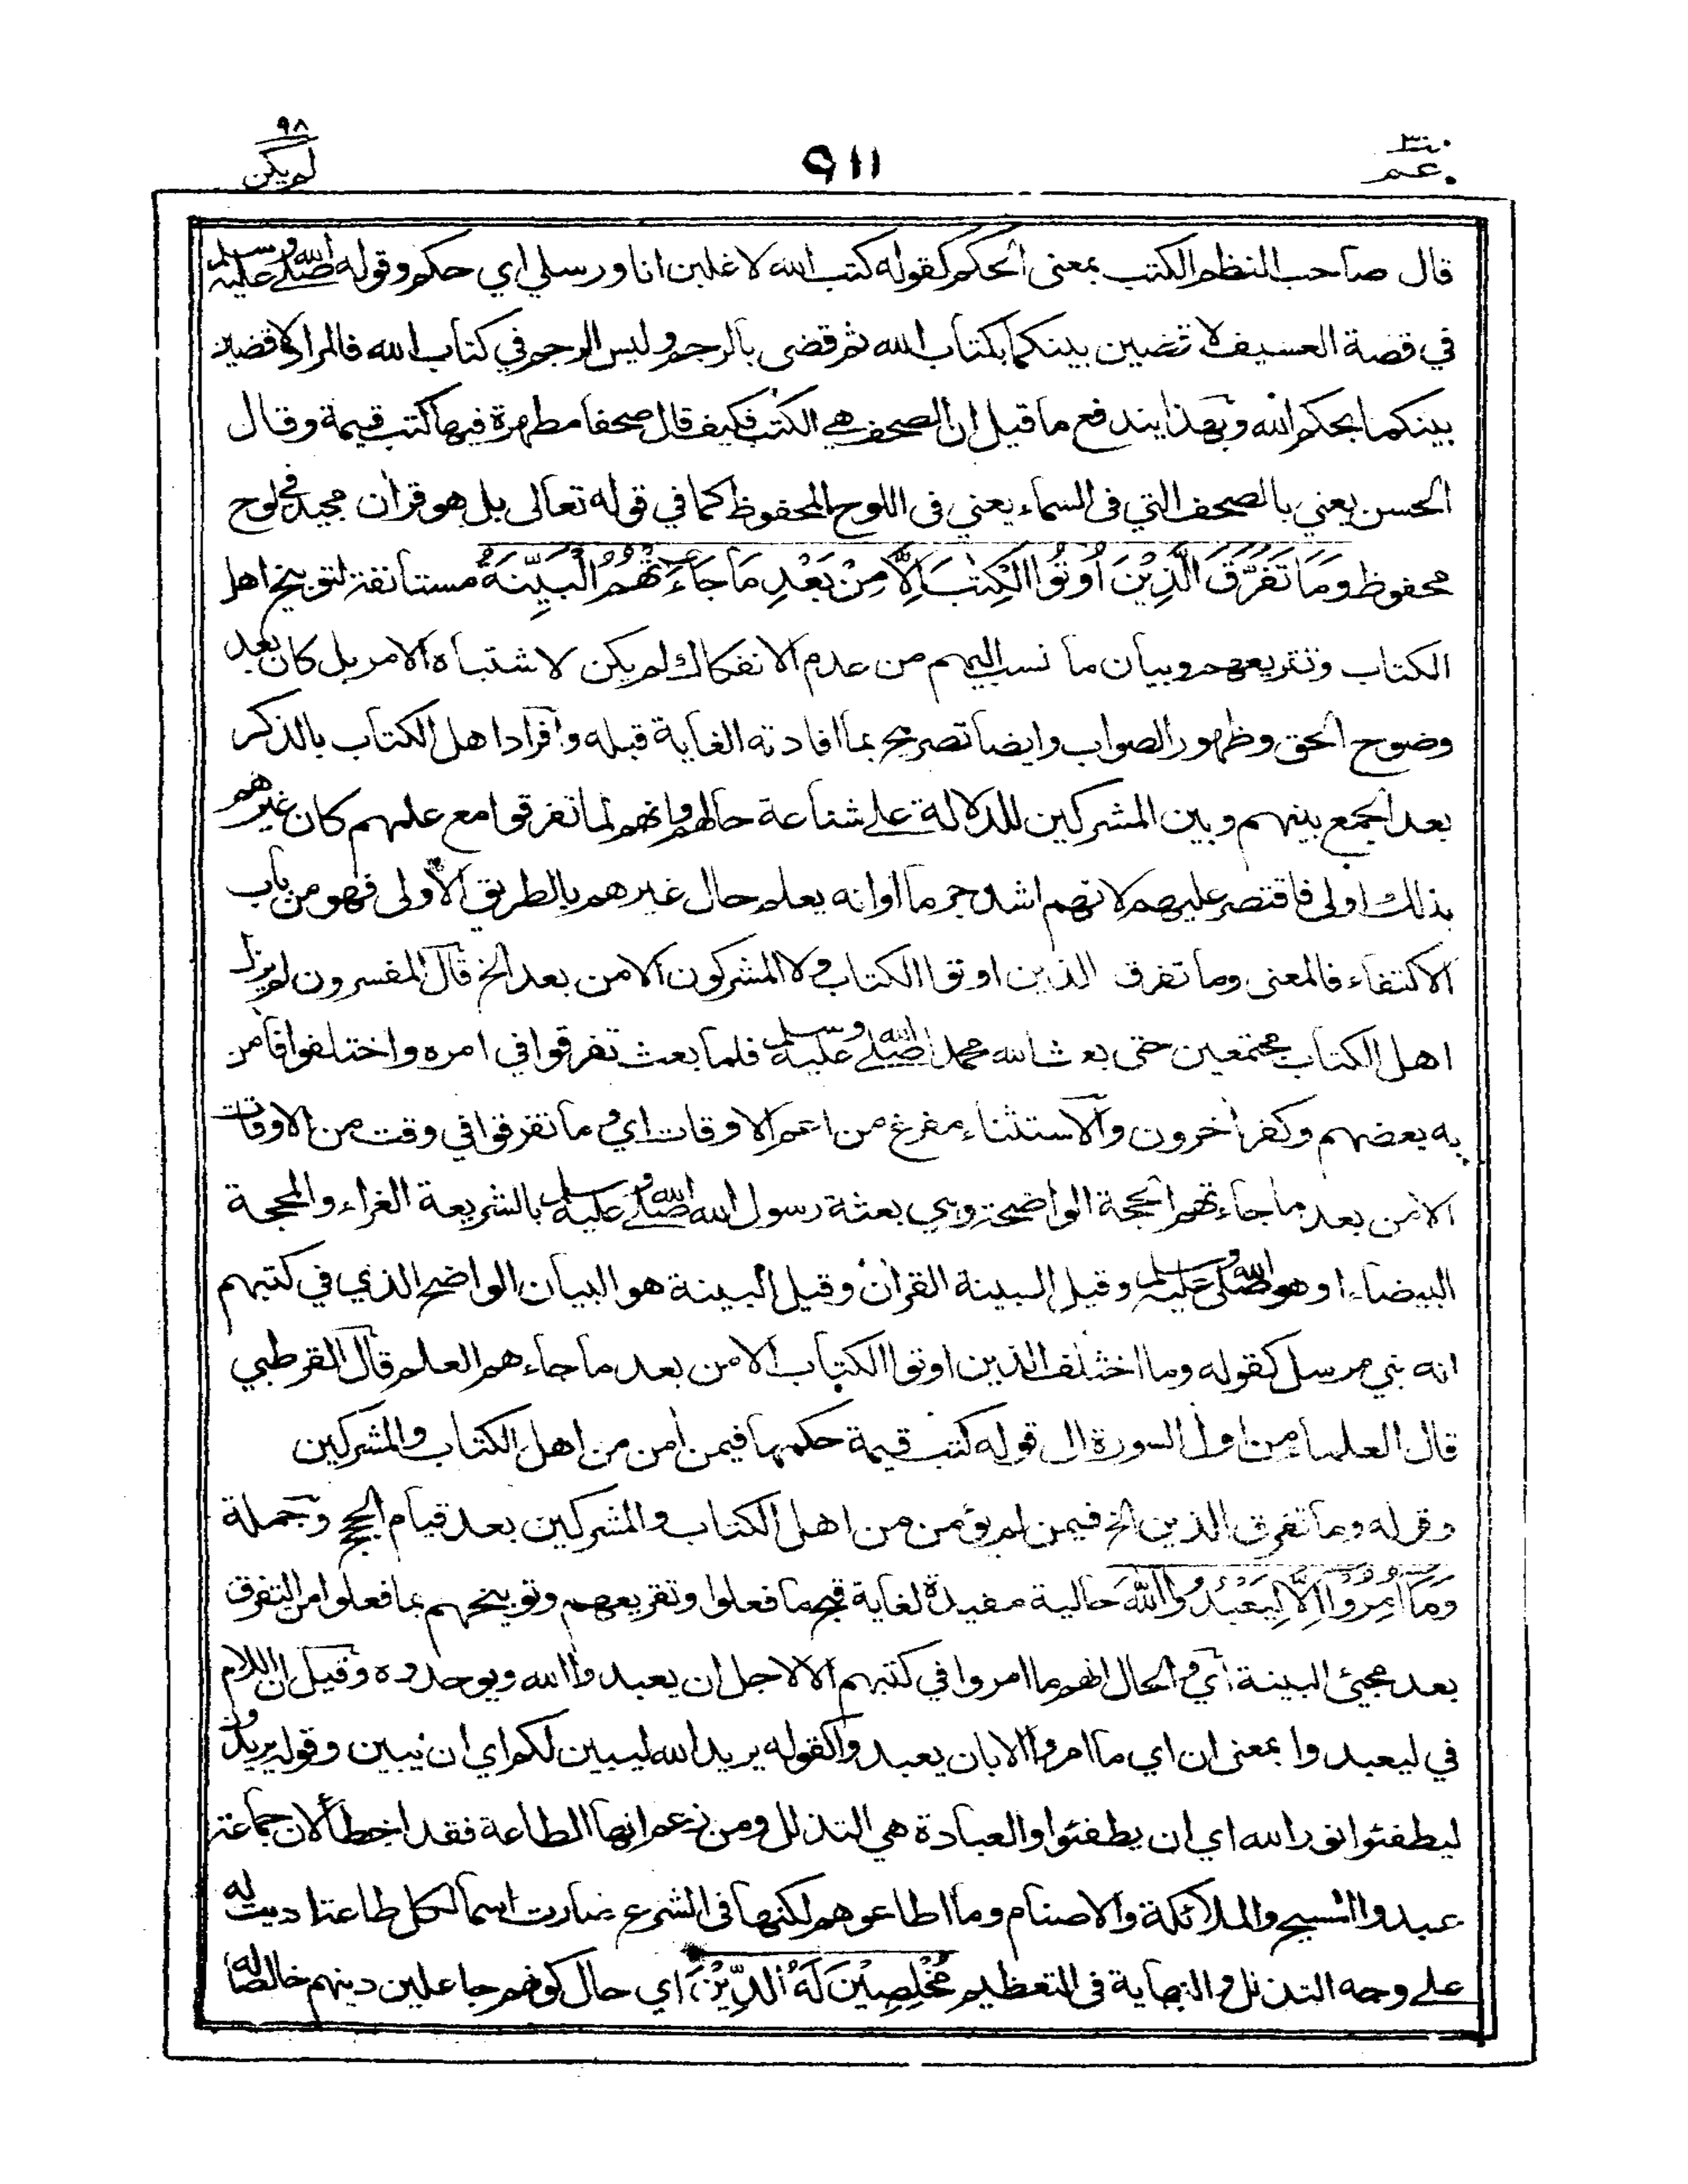 ٣٠ عم
٩١١
٩٨ لم يكن
قال صاحب النظم الكتب بمعنى الحكم كقوله كتب الله لاغلبن انا ورسلي اي حكم وقوله صلى الله عليه وسلم
في قصة العسيف لاقضين بينكما بكتاب الله ثم قضى بالرجم وليس الرجم في كتاب الله فالمراد لاقضين
بينكما بحكم الله وبهذا يندفع ما قيل ان الصحف هي الكتب فكيف قال صحفا مطهرة فيها كتب قيمة وقال
الحسن يعني بالصحف التي في السماء يعني في اللوح المحفوظ كما في قوله تعالى بل هو قران مجيد في لوح
محفوظ وَمَا تَفَرَّقَ الَّذِيْنَ اُوْتُوا الْكِتٰبَ اِلَّا مِنْ بَعْدِ مَا جَآءَتْهُمُ الْبَيِّنَةُ مستانفة لتوبيخ اهل
الكتاب وتقريعهم وبيان ما نسب اليهم من عدم الانفكاك لم يكن لاشتباه الامر بل كان بعد
وضوح الحق وظهور الصواب وايضا تصريح بما افادته الغاية قبله وافراد اهل الكتاب بالذكر
بعد الجمع بينهم وبين المشركين للدلالة على شناعة حالهم وانهم لما تفرقوا مع علمهم كان غيرهم
بذلك اولى فاقتصر عليهم لانهم اشد جرما او انه يعلم حال غيرهم بالطريق الاولى فهو من باب
الاكتفاء فالمعنى وما تفرق الذين اوتوا الكتاب ولا المشركون الا من بعد الخ قال المفسرون لم يزل
اهل الكتاب مجتمعين حتى بعث الله محمدا صلى الله عليه وسلم فلما بعث تفرقوا في امره واختلفوا فامن
به بعضهم وكفر اخرون والاستثناء مفرغ من اعم الاوقات اي وما تفرقوا في وقت من الاوقات
الا من بعد ما جاءتهم الحجة الواضحة وهي بعثة رسول الله صلى الله عليه وسلم بالشريعة الغراء والمحجة
البيضاء او هو صلى الله عليه وسلم وقيل البينة القران وقيل البينة هو البيان الواضح الذي في كتبهم
انه نبي مرسل كقوله وما اختلف الذين اوتوا الكتاب الا من بعد ما جاءهم العلم قال القرطبي
قال العلماء من اول السورة الى قوله كتب قيمة حكمها فيمن امن من اهل الكتاب والمشركين
وقوله وما تفرق الذين الخ فيمن لم يؤمن من اهل الكتاب والمشركين بعد قيام الحجج وجملة
وَمَآ اُمِرُوْٓا اِلَّا لِيَعْبُدُوا اللّٰهَ حالية مفيدة لغاية قبح ما فعلوا وتقريعهم وتوبيخهم بما فعلوا من التفرق
بعد مجيئ البينة اي والحال انهم ما امروا في كتبهم الا لاجل ان يعبدوا الله ويوحدوه وقيل ان اللام
في ليعبدوا بمعنى ان اي ما امروا الا بان يعبدوا كقوله يريد الله ليبين لكم اي ان نيبين وقوله يريدون
ليطفئوا نور الله اي ان يطفئوا والعبادة هي التذلل ومن زعم انها الطاعة فقد اخطأ لان جماعة
عبدوا المسيح والملائكة والاصنام وما اطاعوهم لكنها في الشرع صارت اسما لكل طاعة اديت له
على وجه التذلل والنهاية في التعظيم مُخْلِصِيْنَ لَهُ الدِّيْنَ اي حال كونهم جاعلين دينهم خالصا له